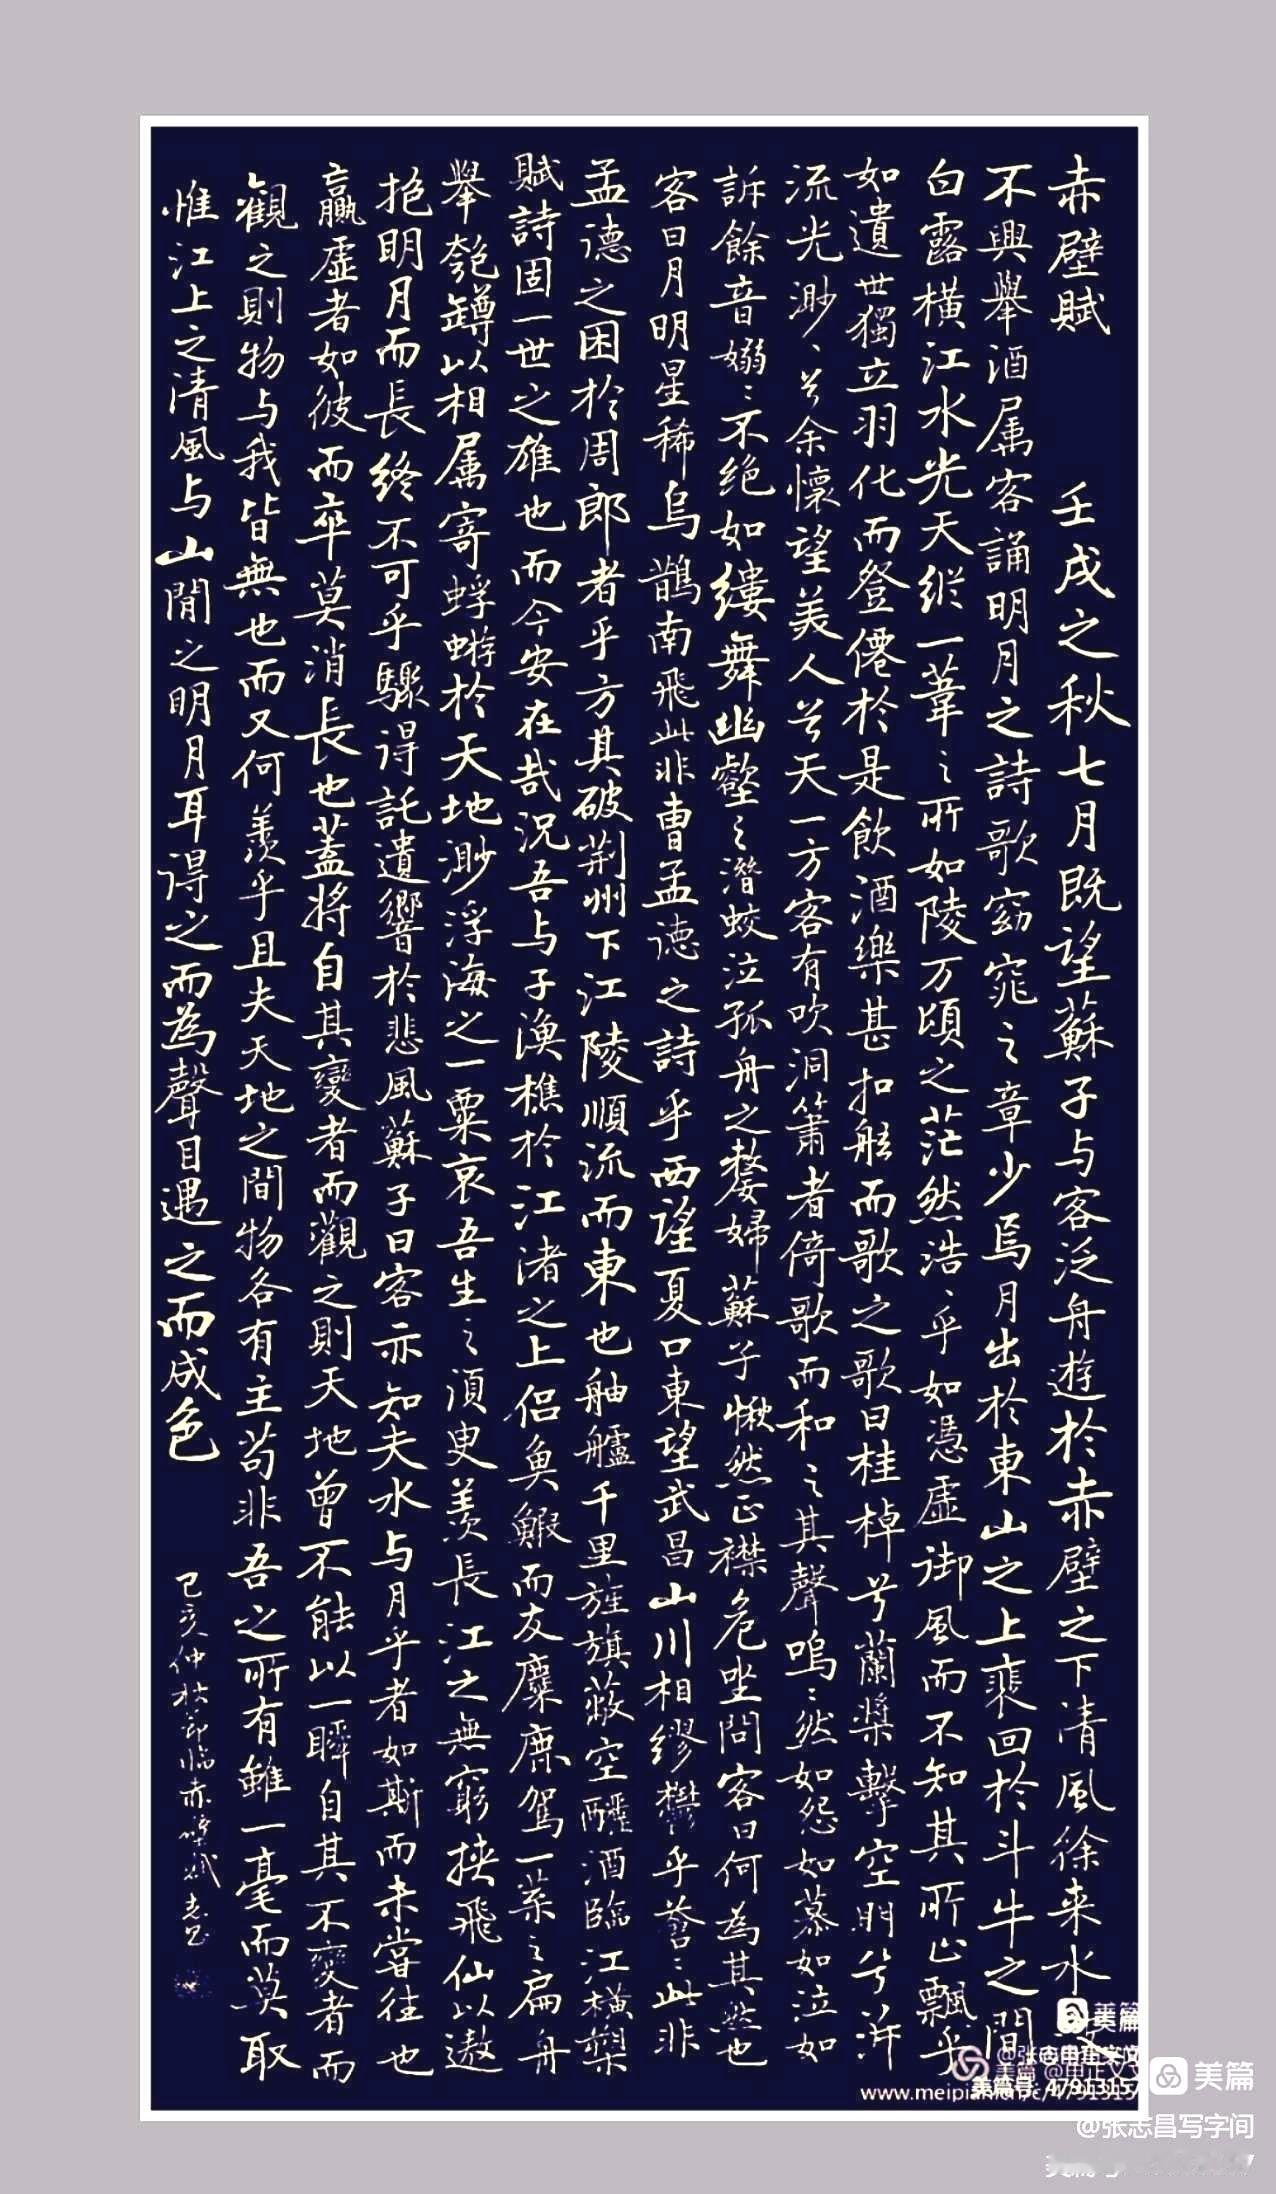 赤壁賦 壬戌之秋七月既望蘇子与客泛舟遊於赤壁之下清風徐来水
不興舉酒属客誦明月之詩歌窈窕之章少焉月出於東山之上裴回於斗牛之間
白露横江水光天纵一葦之所如陵万頃之茫然浩ミ乎如憑虛御風而不知其所止飄乎
如遺世獨立羽化而登僊於是飲酒樂甚扣舷而歌之歌曰桂棹兮蘭槳擊空明兮泝
流光渺ミ兮余懷望美人兮天一方客有吹洞簫者倚歌而和之其聲嗚ミ然如怨如慕如泣如
訴餘音嫋ミ不绝如缕舞幽壑之潛蛟泣孤舟之嫠婦蘇子愀然正襟危坐問客曰何為其然也
客曰月明星稀烏鵲南飛此非曹孟德之詩乎西望夏口東望武昌山川相繆鬱乎蒼ミ此非
孟德之困於周郎者乎方其破荆州下江陵順流而東也舳艫千里旌旗蔽空釃酒臨江横槊
賦詩固一世之雄也而今安在哉況吾与子漁樵於江渚之上侣魚鰕而友麋鹿駕一葉之扁舟
舉匏罇以相属寄蜉蝣於天地渺浮海之一粟哀吾生之須臾羨長江之無窮挾飛仙以遨
抱明月而長終不可乎驟得託遺響於悲風蘇子曰客亦知夫水与月乎者如斯而未嘗往也
贏虛者如彼而卒莫消長也蓋將自其變者而觀之則天地曾不能以一瞬自其不變者而
觀之則物与我皆無也而又何羨乎且夫天地之間物各有主苟非吾之所有雖一毫而莫取
惟江上之清風与山間之明月耳得之而為聲目遇之而成色
己亥仲秋節臨赤壁賦志昌
美篇
@张志昌写字间
美篇号:4791315
www.meipian.cn/c/4791315
美篇
@张志昌写字间